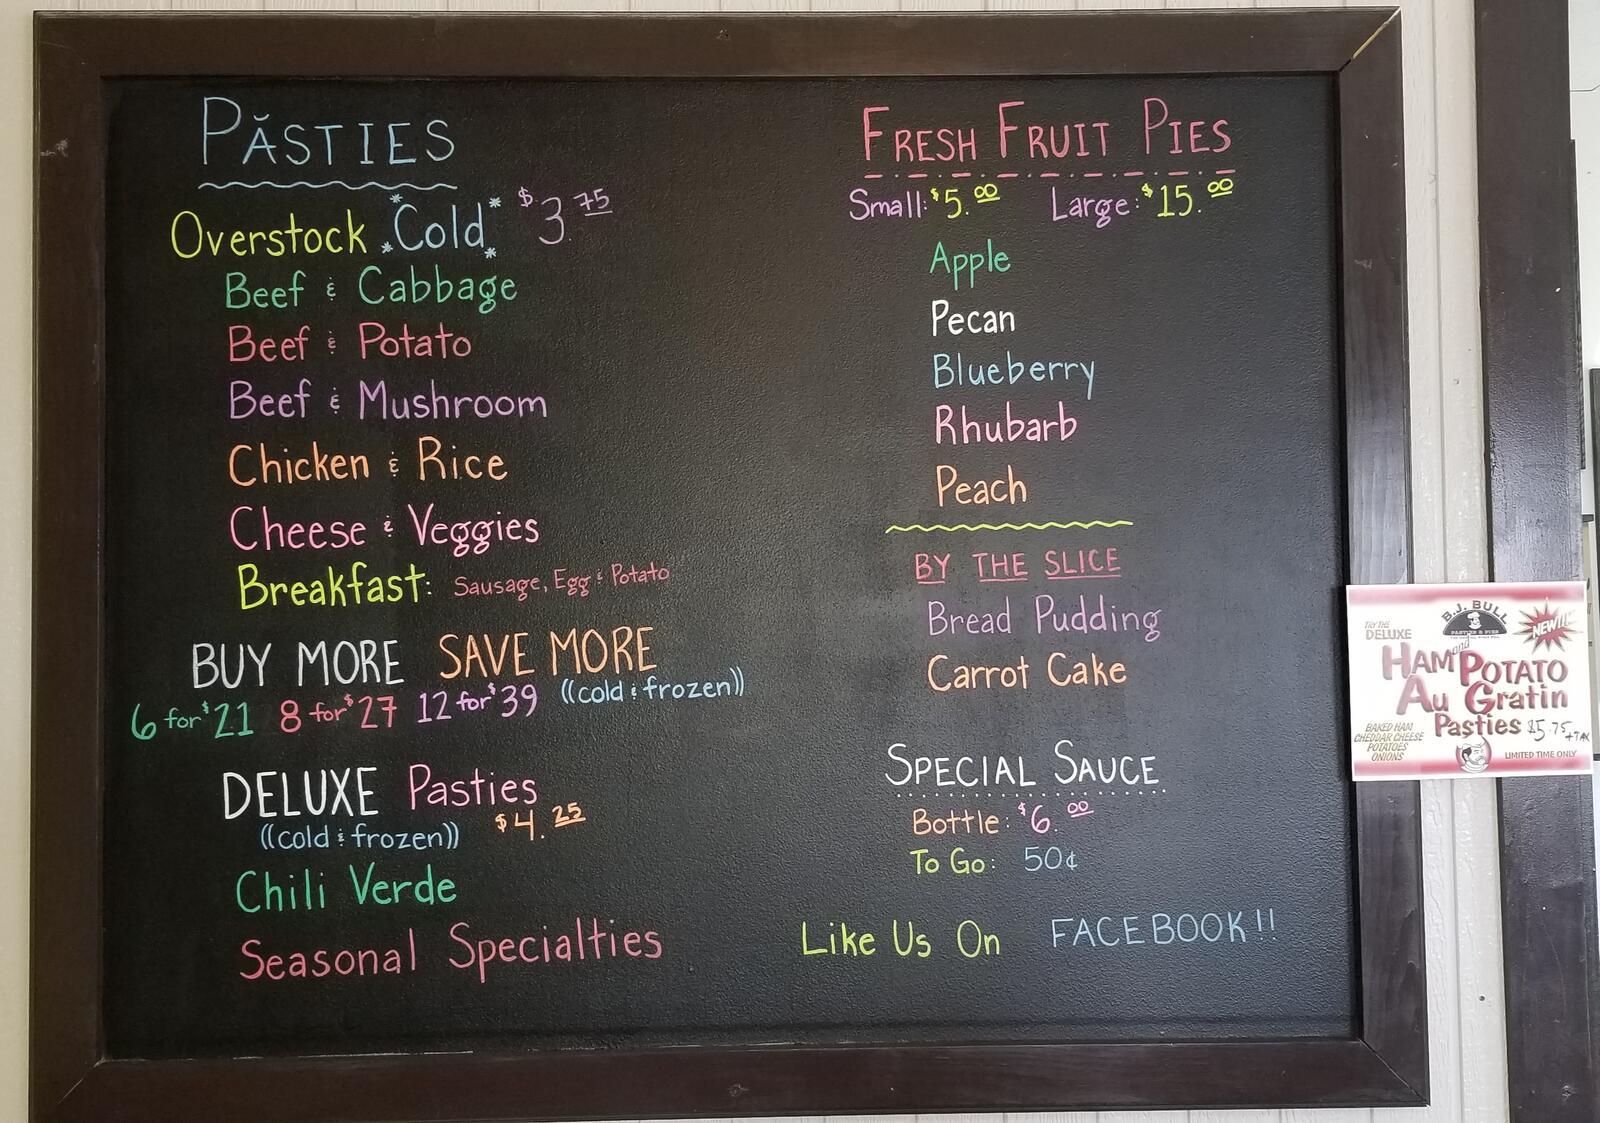 PĂSTIES
Overstock *Cold* $3.75
Beef & Cabbage
Beef & Potato
Beef & Mushroom
Chicken & Rice
Cheese & Veggies
Breakfast: Sausage, Egg & Potato
BUY MORE SAVE MORE
6 for $21 8 for $27 12 for $39 ((cold & frozen))
DELUXE Pasties
((cold & frozen)) $4.25
Chili Verde
Seasonal Specialties
FRESH FRUIT PIES
Small: $5.00 Large: $15.00
Apple
Pecan
Blueberry
Rhubarb
Peach
BY THE SLICE
Bread Pudding
Carrot Cake
SPECIAL SAUCE
Bottle: $6.00
To Go: 50¢
Like Us On FACEBOOK!!
B.J. BULL
PASTIES & PIES
TRY THE
DELUXE
NEW!!
HAM and POTATO
AU Gratin
Pasties $5.75 + TAX
BAKED HAM
CHEDDAR CHEESE
POTATOES
ONIONS
LIMITED TIME ONLY